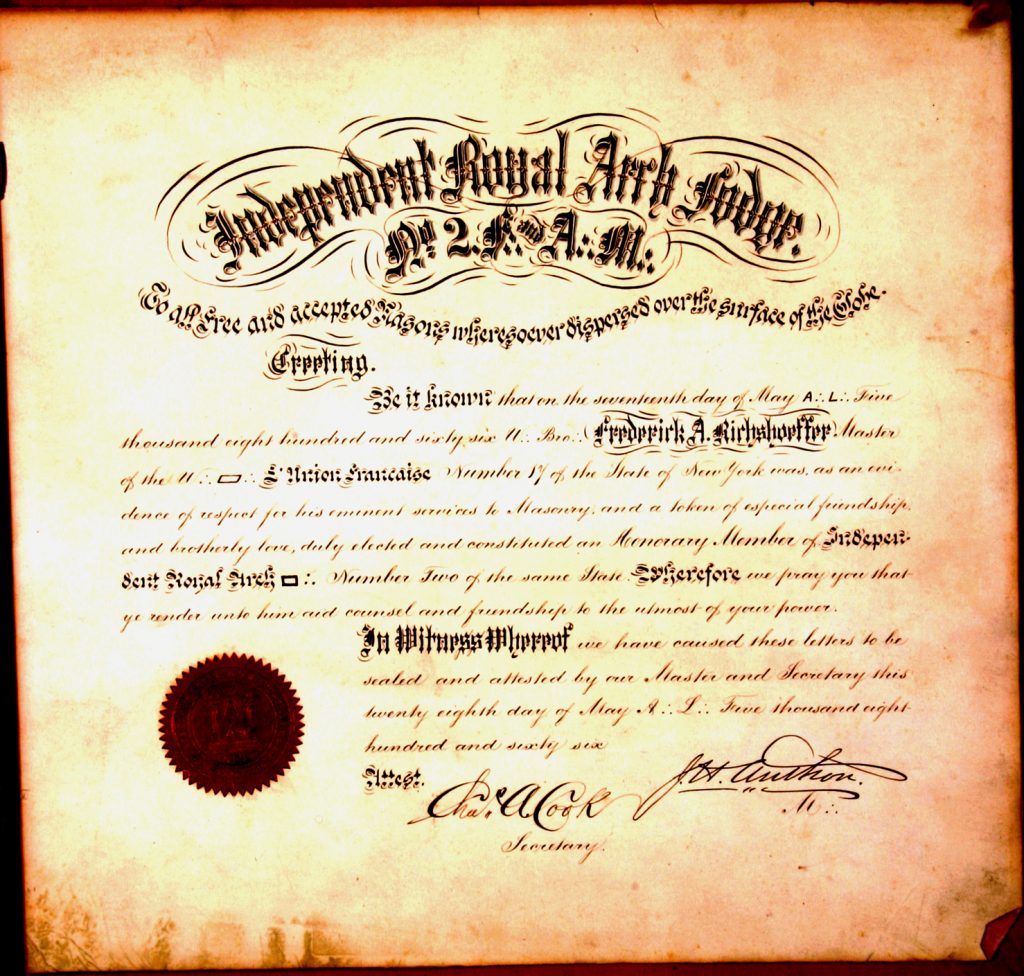 Independent Royal Arch Lodge.
No 2. F. and A∴ M∴
To all Free and accepted Masons wheresoever dispersed over the surface of the Globe.
Greeting.
Be it known that on the seventeenth day of May A∴ L∴ Five
thousand eight hundred and sixty six W∴ Bro∴ Frederick A. Richshoeffer Master
of the W∴ ▭∴ L'Union Francaise Number 17 of the State of New York was, as an evi-
dence of respect for his eminent services to Masonry, and a token of especial friendship
and brotherly love, duly elected and constituted an Honorary Member of Indepen-
dent Royal Arch ▭∴ Number Two of the same State. Wherefore we pray you that
ye render unto him aid counsel and friendship to the utmost of your power.
In Witness Whereof we have caused these letters to be
sealed and attested by our Master and Secretary this
twenty eighth day of May A∴ L∴ Five thousand eight
hundred and sixty six
Attest.
Chas. A. Cook
Secretary.
J.H. Anthon.
M∴